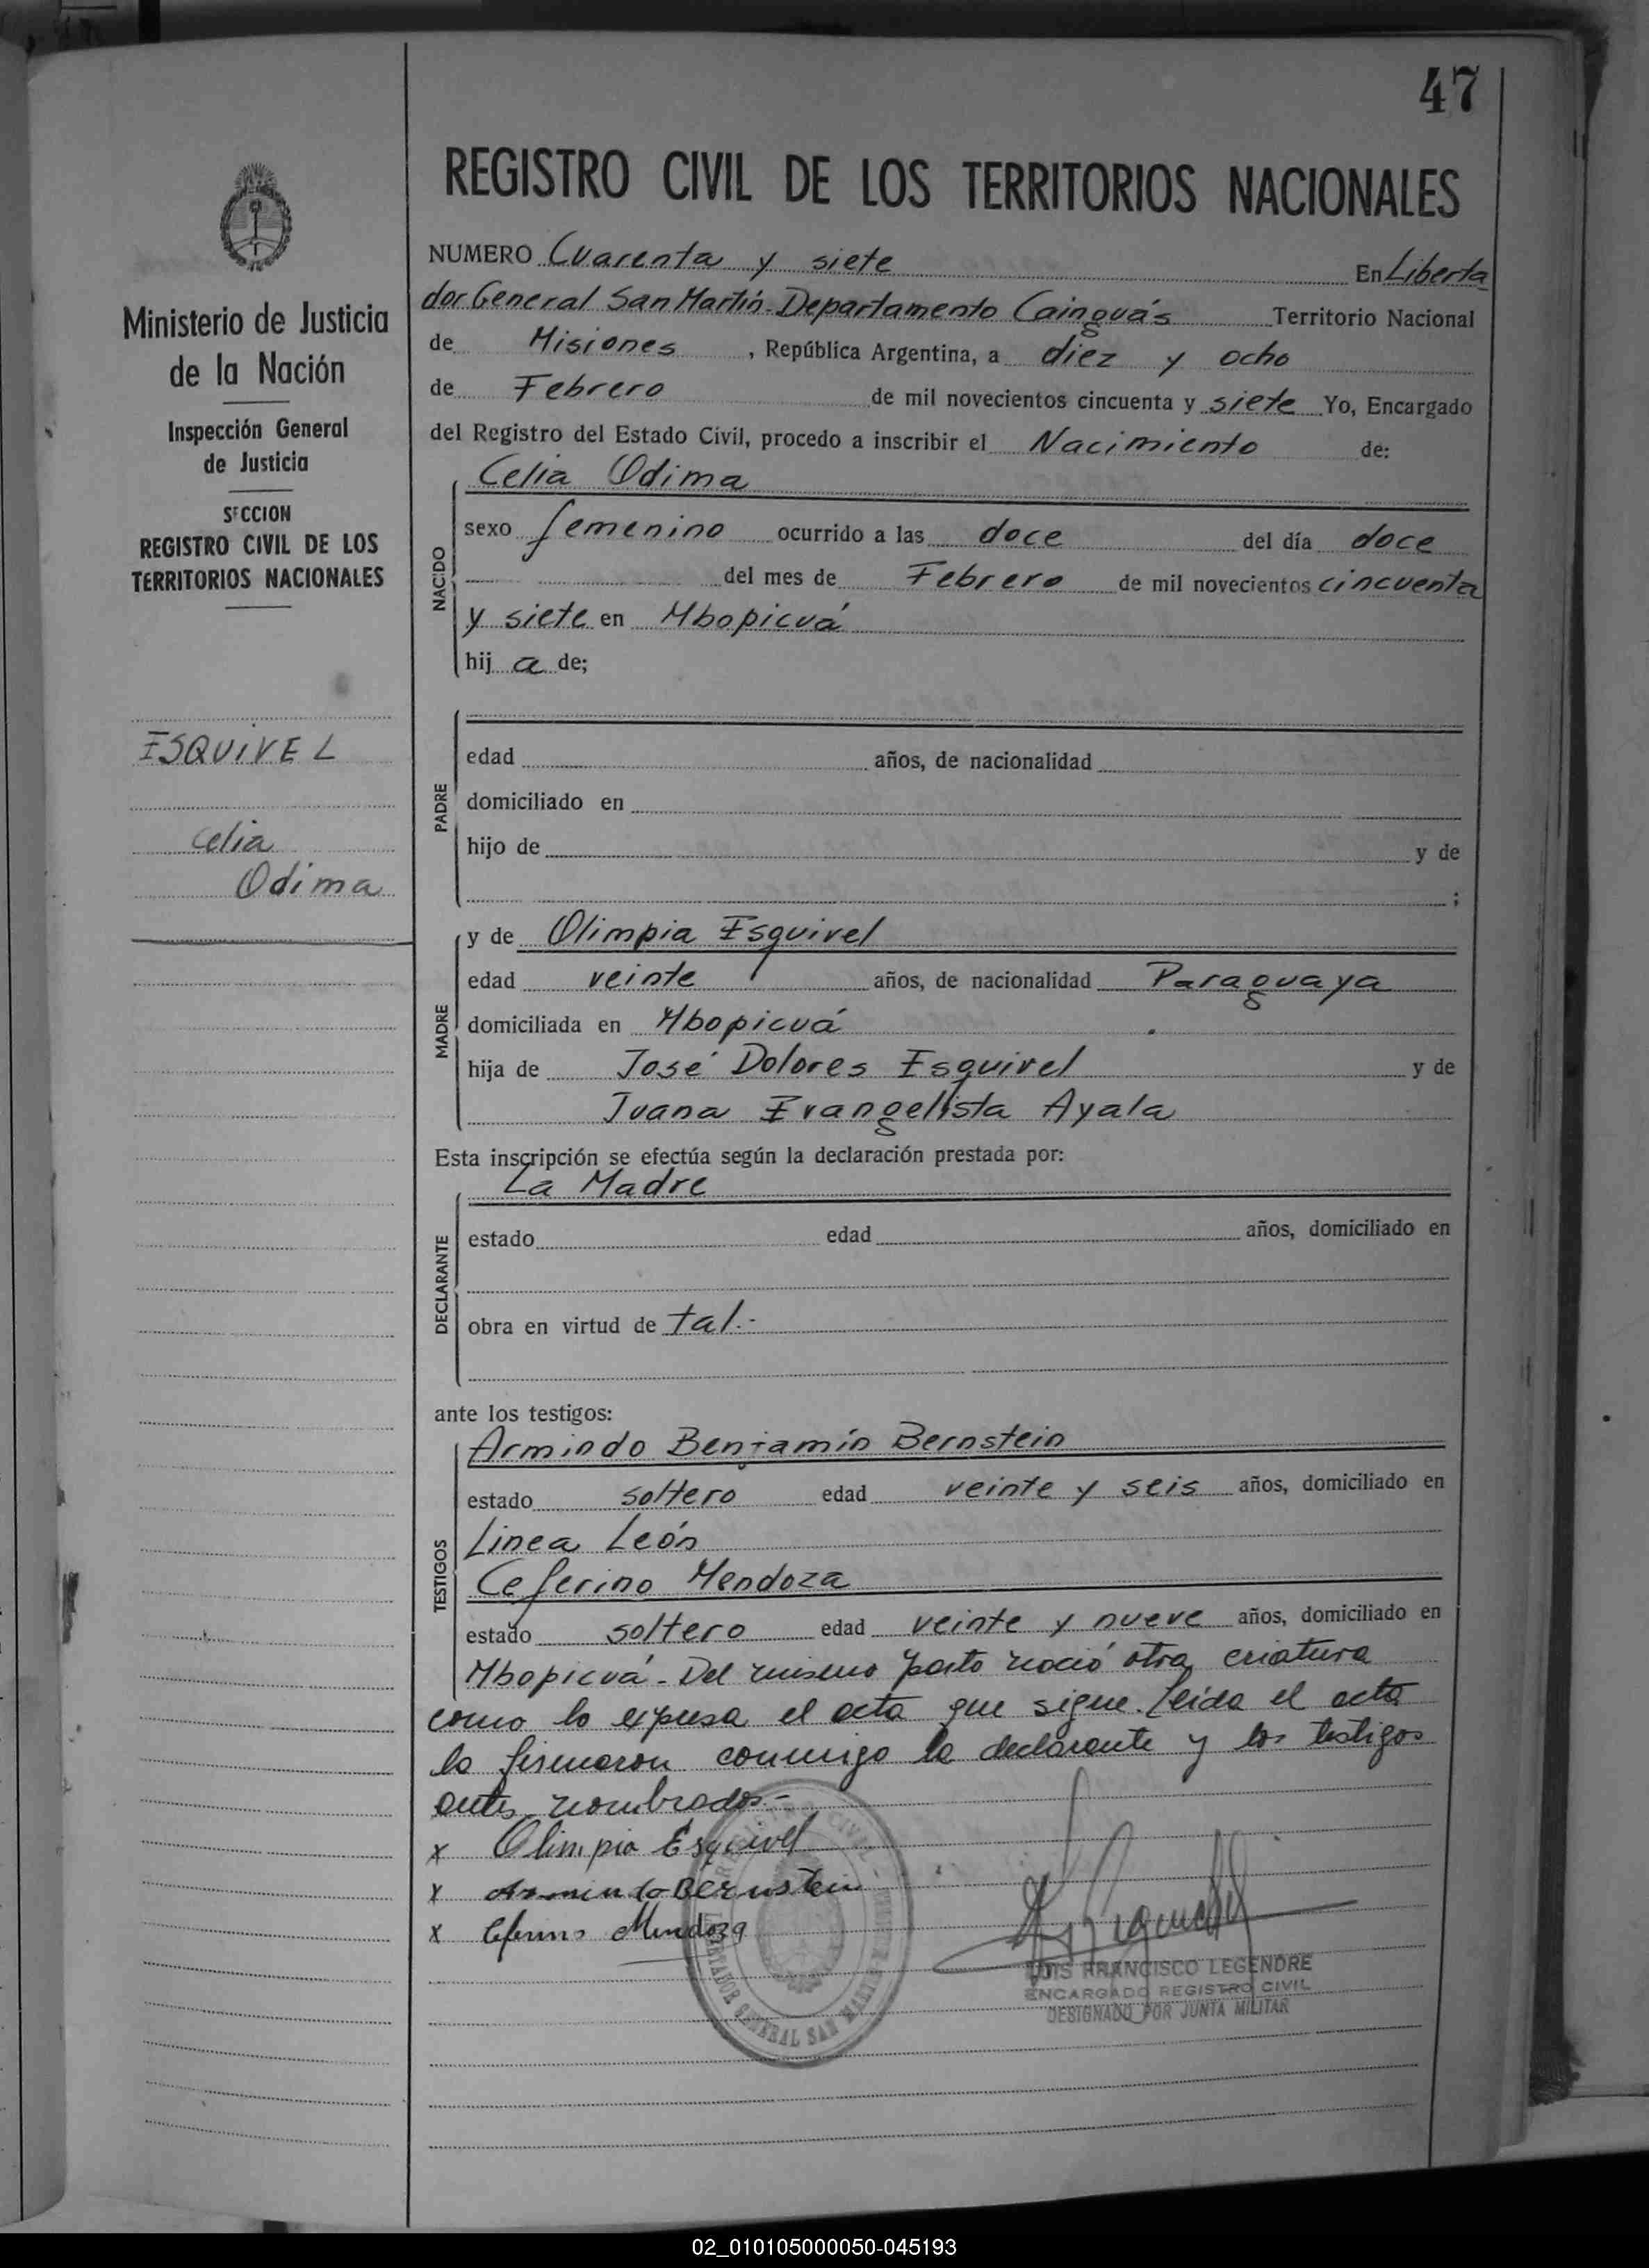 47
REGISTRO CIVIL DE LOS TERRITORIOS NACIONALES
Ministerio de Justicia
de la Nación
Inspección General
de Justicia
SECCION
REGISTRO CIVIL DE LOS
TERRITORIOS NACIONALES
ESQUIVEL
Celia
Odima
NUMERO Cuarenta y siete En Liberta
dor General San Martín - Departamento Cainguás Territorio Nacional
de Misiones, República Argentina, a diez y ocho
de Febrero de mil novecientos cincuenta y siete Yo, Encargado
del Registro del Estado Civil, procedo a inscribir el Nacimiento de:
NACIDO
Celia Odima
sexo femenino ocurrido a las doce del día doce
del mes de Febrero de mil novecientos cincuenta
y siete en Mbopicuá
hij a de;
PADRE
edad años, de nacionalidad
domiciliado en
hijo de y de
;
MADRE
y de Olimpia Esquivel
edad veinte años, de nacionalidad Paraguaya
domiciliada en Mbopicuá
hija de José Dolores Esquivel y de
Juana Evangelista Ayala
Esta inscripción se efectúa según la declaración prestada por:
DECLARANTE
La Madre
estado edad años, domiciliado en
obra en virtud de tal.-
ante los testigos:
TESTIGOS
Armindo Benjamín Bernstein
estado soltero edad veinte y seis años, domiciliado en
Linea León
Ceferino Mendoza
estado soltero edad veinte y nueve años, domiciliado en
Mbopicuá - Del mismo parto nació otra criatura
como lo expresa el acta que sigue. Leida el acta
la firmaron conmigo la declarante y los testigos
antes nombrados.-
x Olimpia Esquivel
x Armindo Bernstein
x Ceferino Mendoza
LIBERTADOR GENERAL SAN MARTIN
LUIS FRANCISCO LEGENDRE
ENCARGADO REGISTRO CIVIL
DESIGNADO POR JUNTA MILITAR
02_010105000050-045193